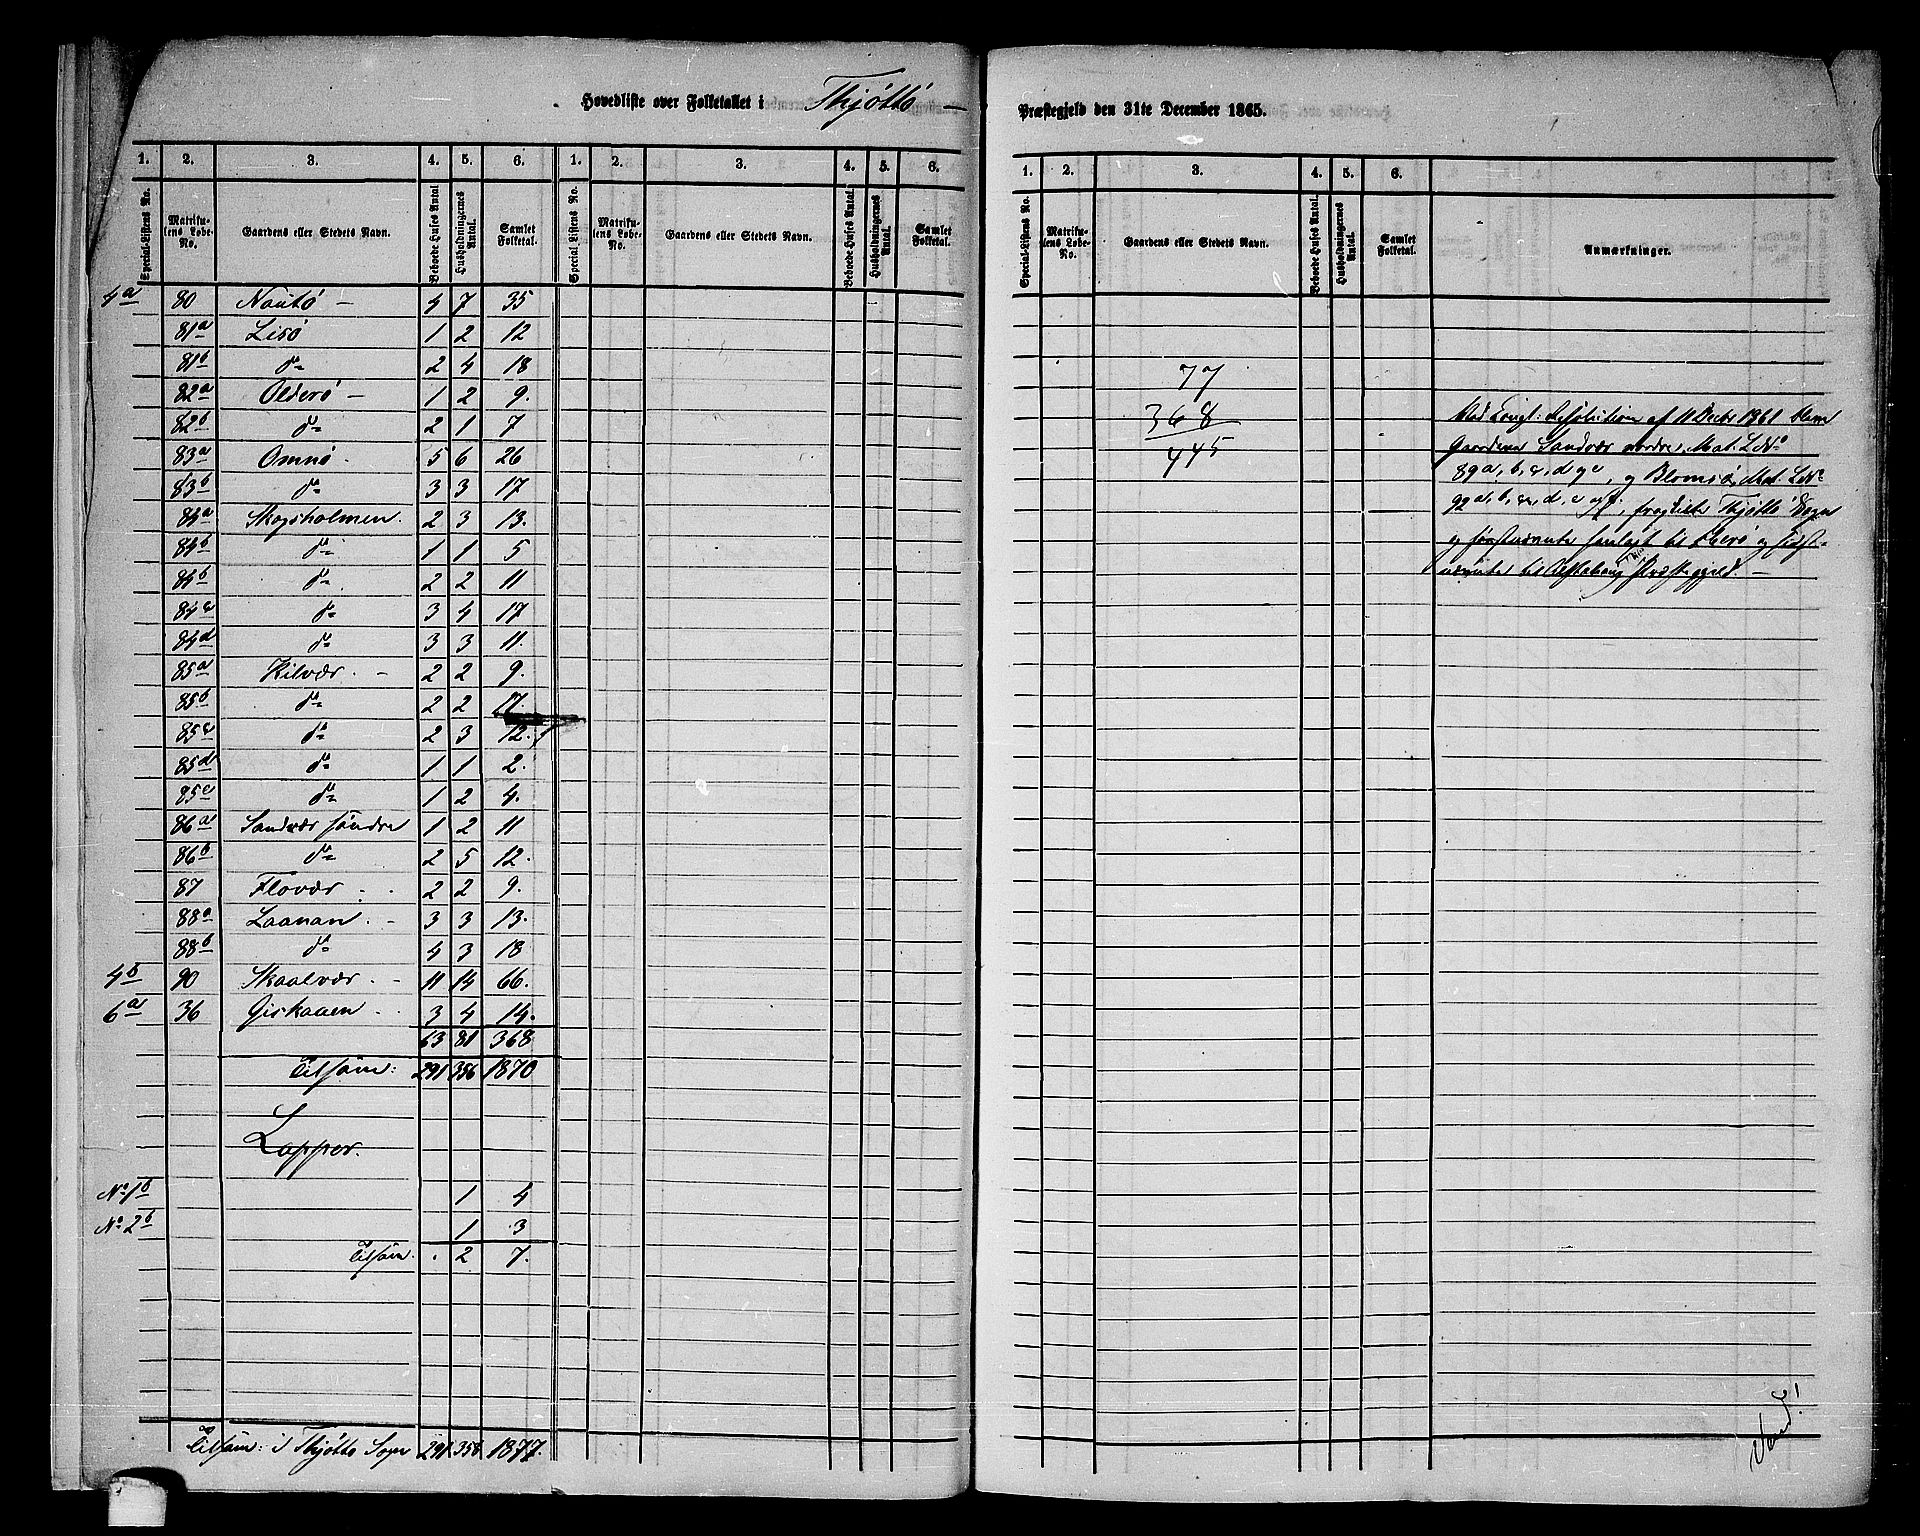 Hovedliste over Folketallet i Thjøttø — Præstegjeld den 31te December 1865.
1. 2. 3. 4. 5. 6. 1. 2. 3. 4. 5. 6.
Special-Listens No. Matrikulens Løbe-No. Gaardens eller Stedets Navn. Beboede Huses Antal Husholdningernes Antal. Samlet Folketal. Special-Listens No. Matrikulens Løbe-No. Gaardens eller Stedets Navn. Beboede Huses Antal. Husholdningernes Antal. Samlet Folketal.
4a 80 Nautø — 4 7 35
81a Lisø 1 2 12
81b do 2 4 18
82a Olderø — 1 2 9.
82b do 2 1 7
83a Omnø . 5 6 26
83b do 3 3 17
84a Skogsholmen. 2 3 13.
84b do 1 1 5
84b do 2 2 11
84c do 3 4 17
84d do 3 3 11.
85a Hilvær . - 2 2 9.
85b do 2 2 17.
85c do 2 3 12.
85d do 1 1 2.
85e do 1 2 4.
86a Sandvær søndre 1 2 11
86b do 2 5 12.
87 Flovær . . 2 2 9.
88a Laanan . - 3 3 13.
88b do 4 3 18
4b 90 Skaalvær . - 11 14 66.
6a 36 Giskaaen . . 3 4 14.
63 81 368
Tilsam: 291 356 1870
Lapper.
No 1b 1 4
No 2b 1 3
Tilsam. . 2 7.
Tilsam: i Thjøttø Sogn 291 358 1877.
1. 2. 3. 4. 5. 6.
Special-Listens No. Matrikulens Løbe-No. Gaardens eller Stedets Navn. Beboede Huses Antal. Husholdningernes Antal. Samlet Folketal. Anmærkninger.
77
368
445
Ved Kongl. Resolution af 11 Decbr 1861 blev
Gaardene Sandvær nordre, Mat. L No
89a, b, c, d og e, og Blomsø, Mat. L No
92a, b, c, d, e og f, fraskilt Thjøttø Sogn
og førstnævnte henlagt til Herø og sidst-
nævnte til Alstahoug Præstegjeld. —
Vend!